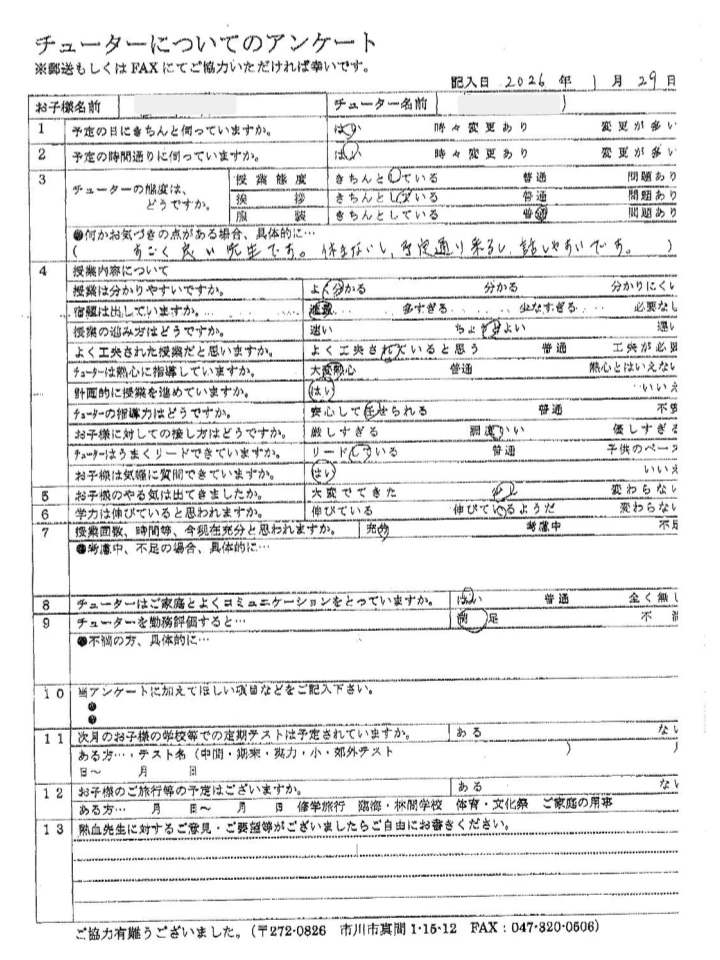 チューターについてのアンケート
※郵送もしくはFAXにてご協力いただければ幸いです。
記入日 2026 年 1 月 29 日
お子様名前 チューター名前 )
1 予定の日にきちんと伺っていますか。 はい 時々変更あり 変更が多い
2 予定の時間通りに伺っていますか。 はい 時々変更あり 変更が多い
3 チューターの態度は、どうですか。 授業態度 きちんとしている 普通 問題あり
挨拶 きちんとしている 普通 問題あり
服装 きちんとしている 普通 問題あり
●何かお気づきの点がある場合、具体的に…
( すごく良い先生です。休まないし、予定通り来るし、話しやすいです。 )
4 授業内容について
授業は分かりやすいですか。 よく分かる 分かる 分かりにくい
宿題は出していますか。 適量 多すぎる 少なすぎる 必要なし
授業の進み方はどうですか。 速い ちょうどよい 遅い
よく工夫された授業だと思いますか。 よく工夫されていると思う 普通 工夫が必要
チューターは熱心に指導していますか。 大変熱心 普通 熱心とはいえない
計画的に授業を進めていますか。 はい いいえ
チューターの指導力はどうですか。 安心して任せられる 普通 不安
お子様に対しての接し方はどうですか。 厳しすぎる 調度いい 優しすぎる
チューターはうまくリードできていますか。 リードしている 普通 子供のペース
お子様は気軽に質問できていますか。 はい いいえ
5 お子様のやる気は出てきましたか。 大変でてきた 少し 変わらない
6 学力は伸びていると思いますか。 伸びている 伸びているようだ 変わらない
7 授業回数、時間等、今現在充分と思われますか。 充分 考慮中 不足
●考慮中、不足の場合、具体的に…
8 チューターはご家庭とよくコミュニケーションをとっていますか。 はい 普通 全く無し
9 チューターを勤務評価すると… 満足 不満
●不満の方、具体的に…
10 当アンケートに加えてほしい項目などをご記入下さい。
●
●
11 次月のお子様の学校等での定期テストは予定されていますか。 ある ない
ある方…・テスト名(中間・期末・実力・小・郊外テスト )
日~ 月 日
12 お子様のご旅行等の予定はございますか。 ある ない
ある方… 月 日~ 月 日 修学旅行 臨海・林間学校 体育・文化祭 ご家庭の用事
13 熱血先生に対するご意見・ご要望等がございましたらご自由にお書きください。
ご協力有難うございました。(〒272-0826 市川市真間1-15-12 FAX:047-320-0506)